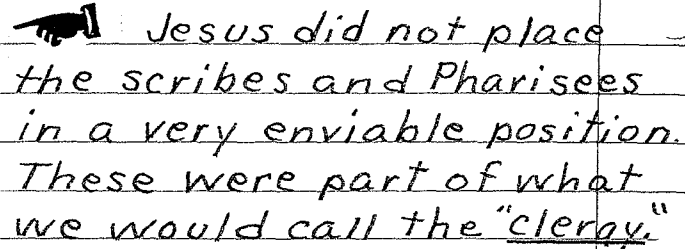 Jesus did not place
the scribes and Pharisees
in a very enviable position.
These were part of what
we would call the "clergy."